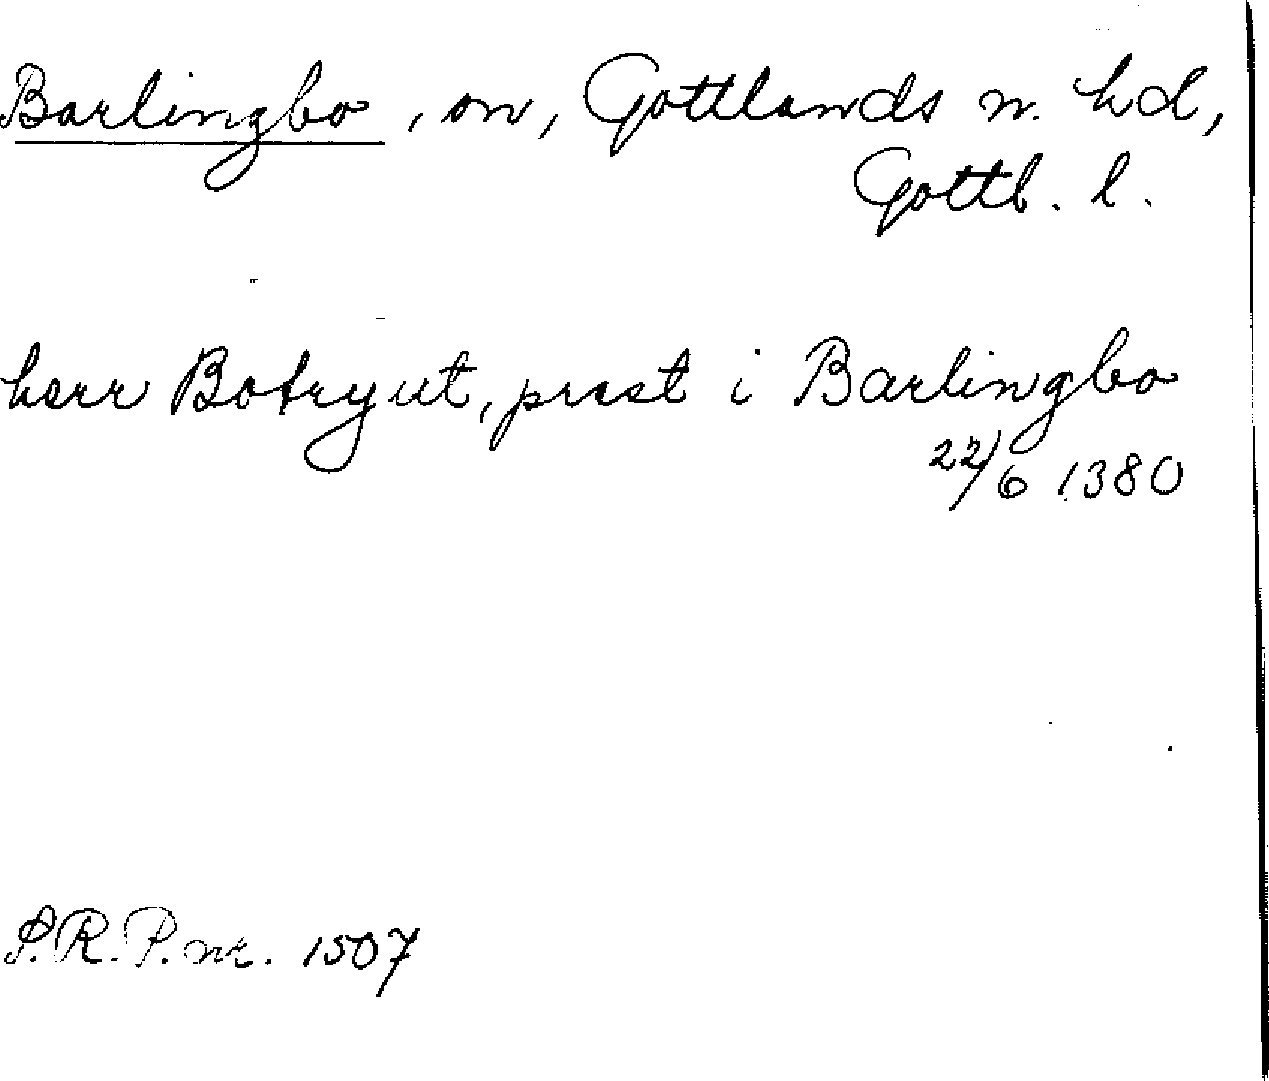 Barlingbo, sn, Gottlands n. hd,
Gottl. l.
herr Botryut, prest i Barlingbo
22/6 1380
S.R.P. nr. 1507